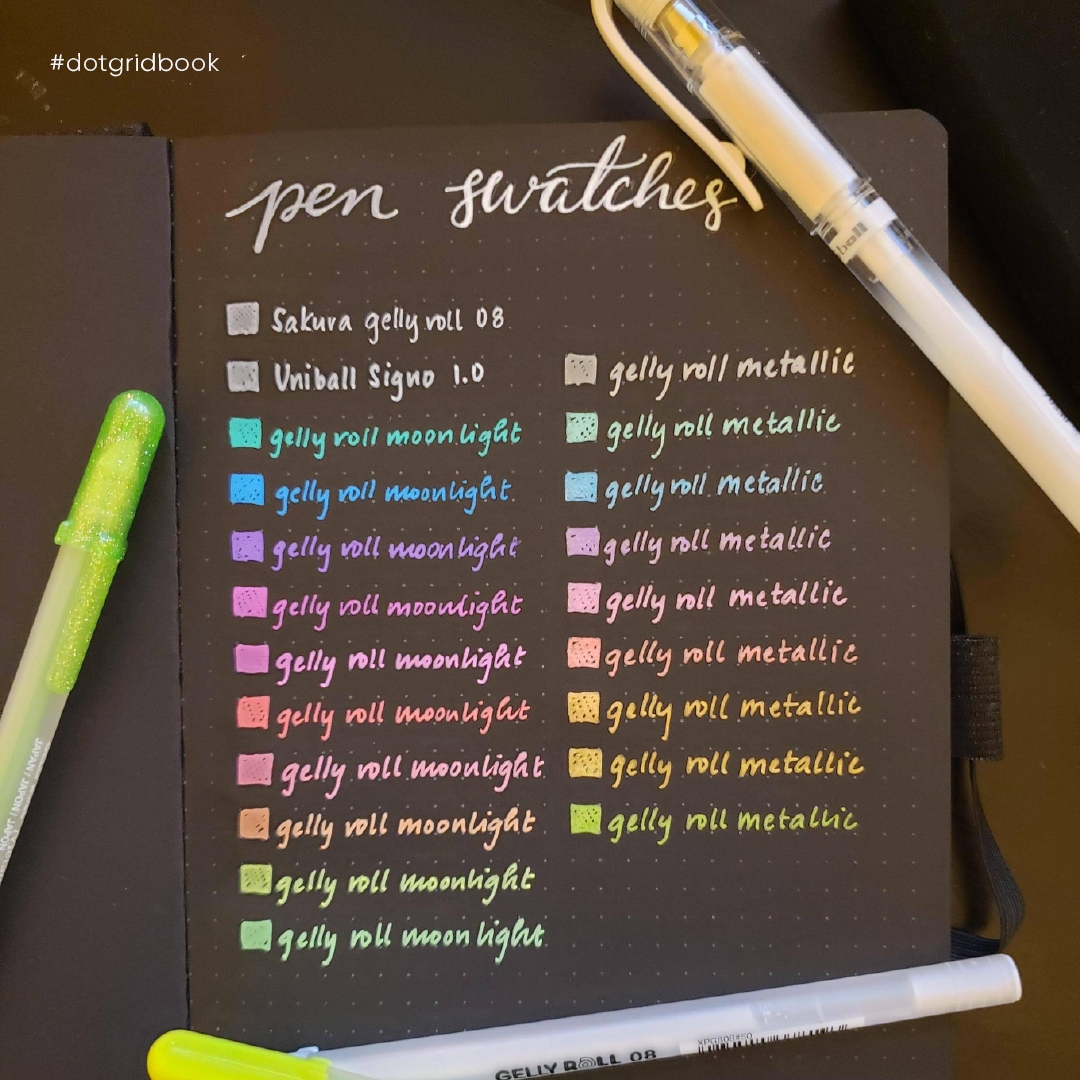 #dotgridbook
pen swatches
Sakura gelly roll 08
Uniball Signo 1.0
gelly roll moonlight
gelly roll moonlight
gelly roll moonlight
gelly roll moonlight
gelly roll moonlight
gelly roll moonlight
gelly roll moonlight
gelly roll moonlight
gelly roll moonlight
gelly roll moonlight
gelly roll metallic
gelly roll metallic
gelly roll metallic
gelly roll metallic
gelly roll metallic
gelly roll metallic
gelly roll metallic
gelly roll metallic
gelly roll metallic
ball
JAPAN / JAPON / JAPÓN
XPGB08#50
GELLY ROLL 08